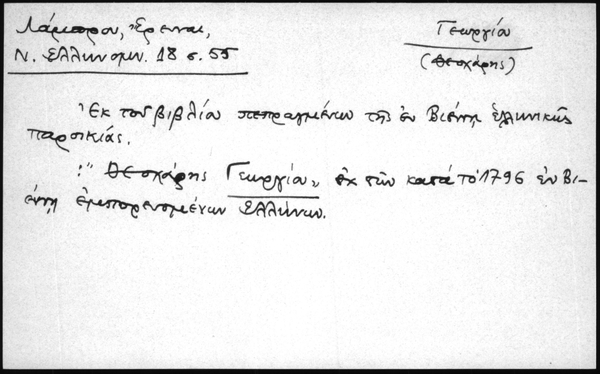 Λάμπρου, Ἔρευναι,
Ν. Ἑλληνομν. 18 σ. 55
Γεωργίου
(Θεοχάρης)
Ἐκ τοῦ βιβλίου πεπραγμένων τῆς ἐν Βιέννῃ ἑλληνικῆς
παροικίας.
:" Θεοχάρης Γεωργίου„ ἐκ τῶν κατά τό 1796 ἐν Βι-
έννῃ ἐμπορευομένων Ἑλλήνων.